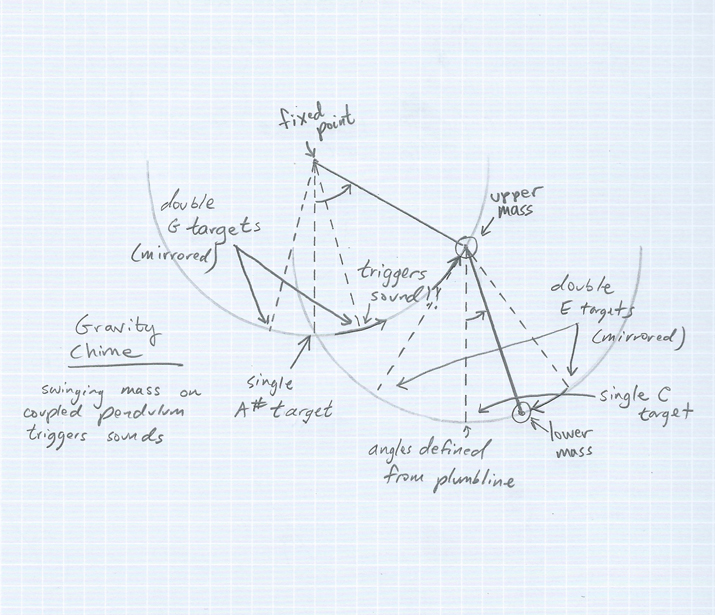 fixed
point
double
G targets
(mirrored)
upper
mass
triggers
sound
double
E targets
(mirrored)
Gravity
Chime
swinging mass on
coupled pendulum
triggers sounds
single
A# target
single C
target
lower
mass
angles defined
from plumbline